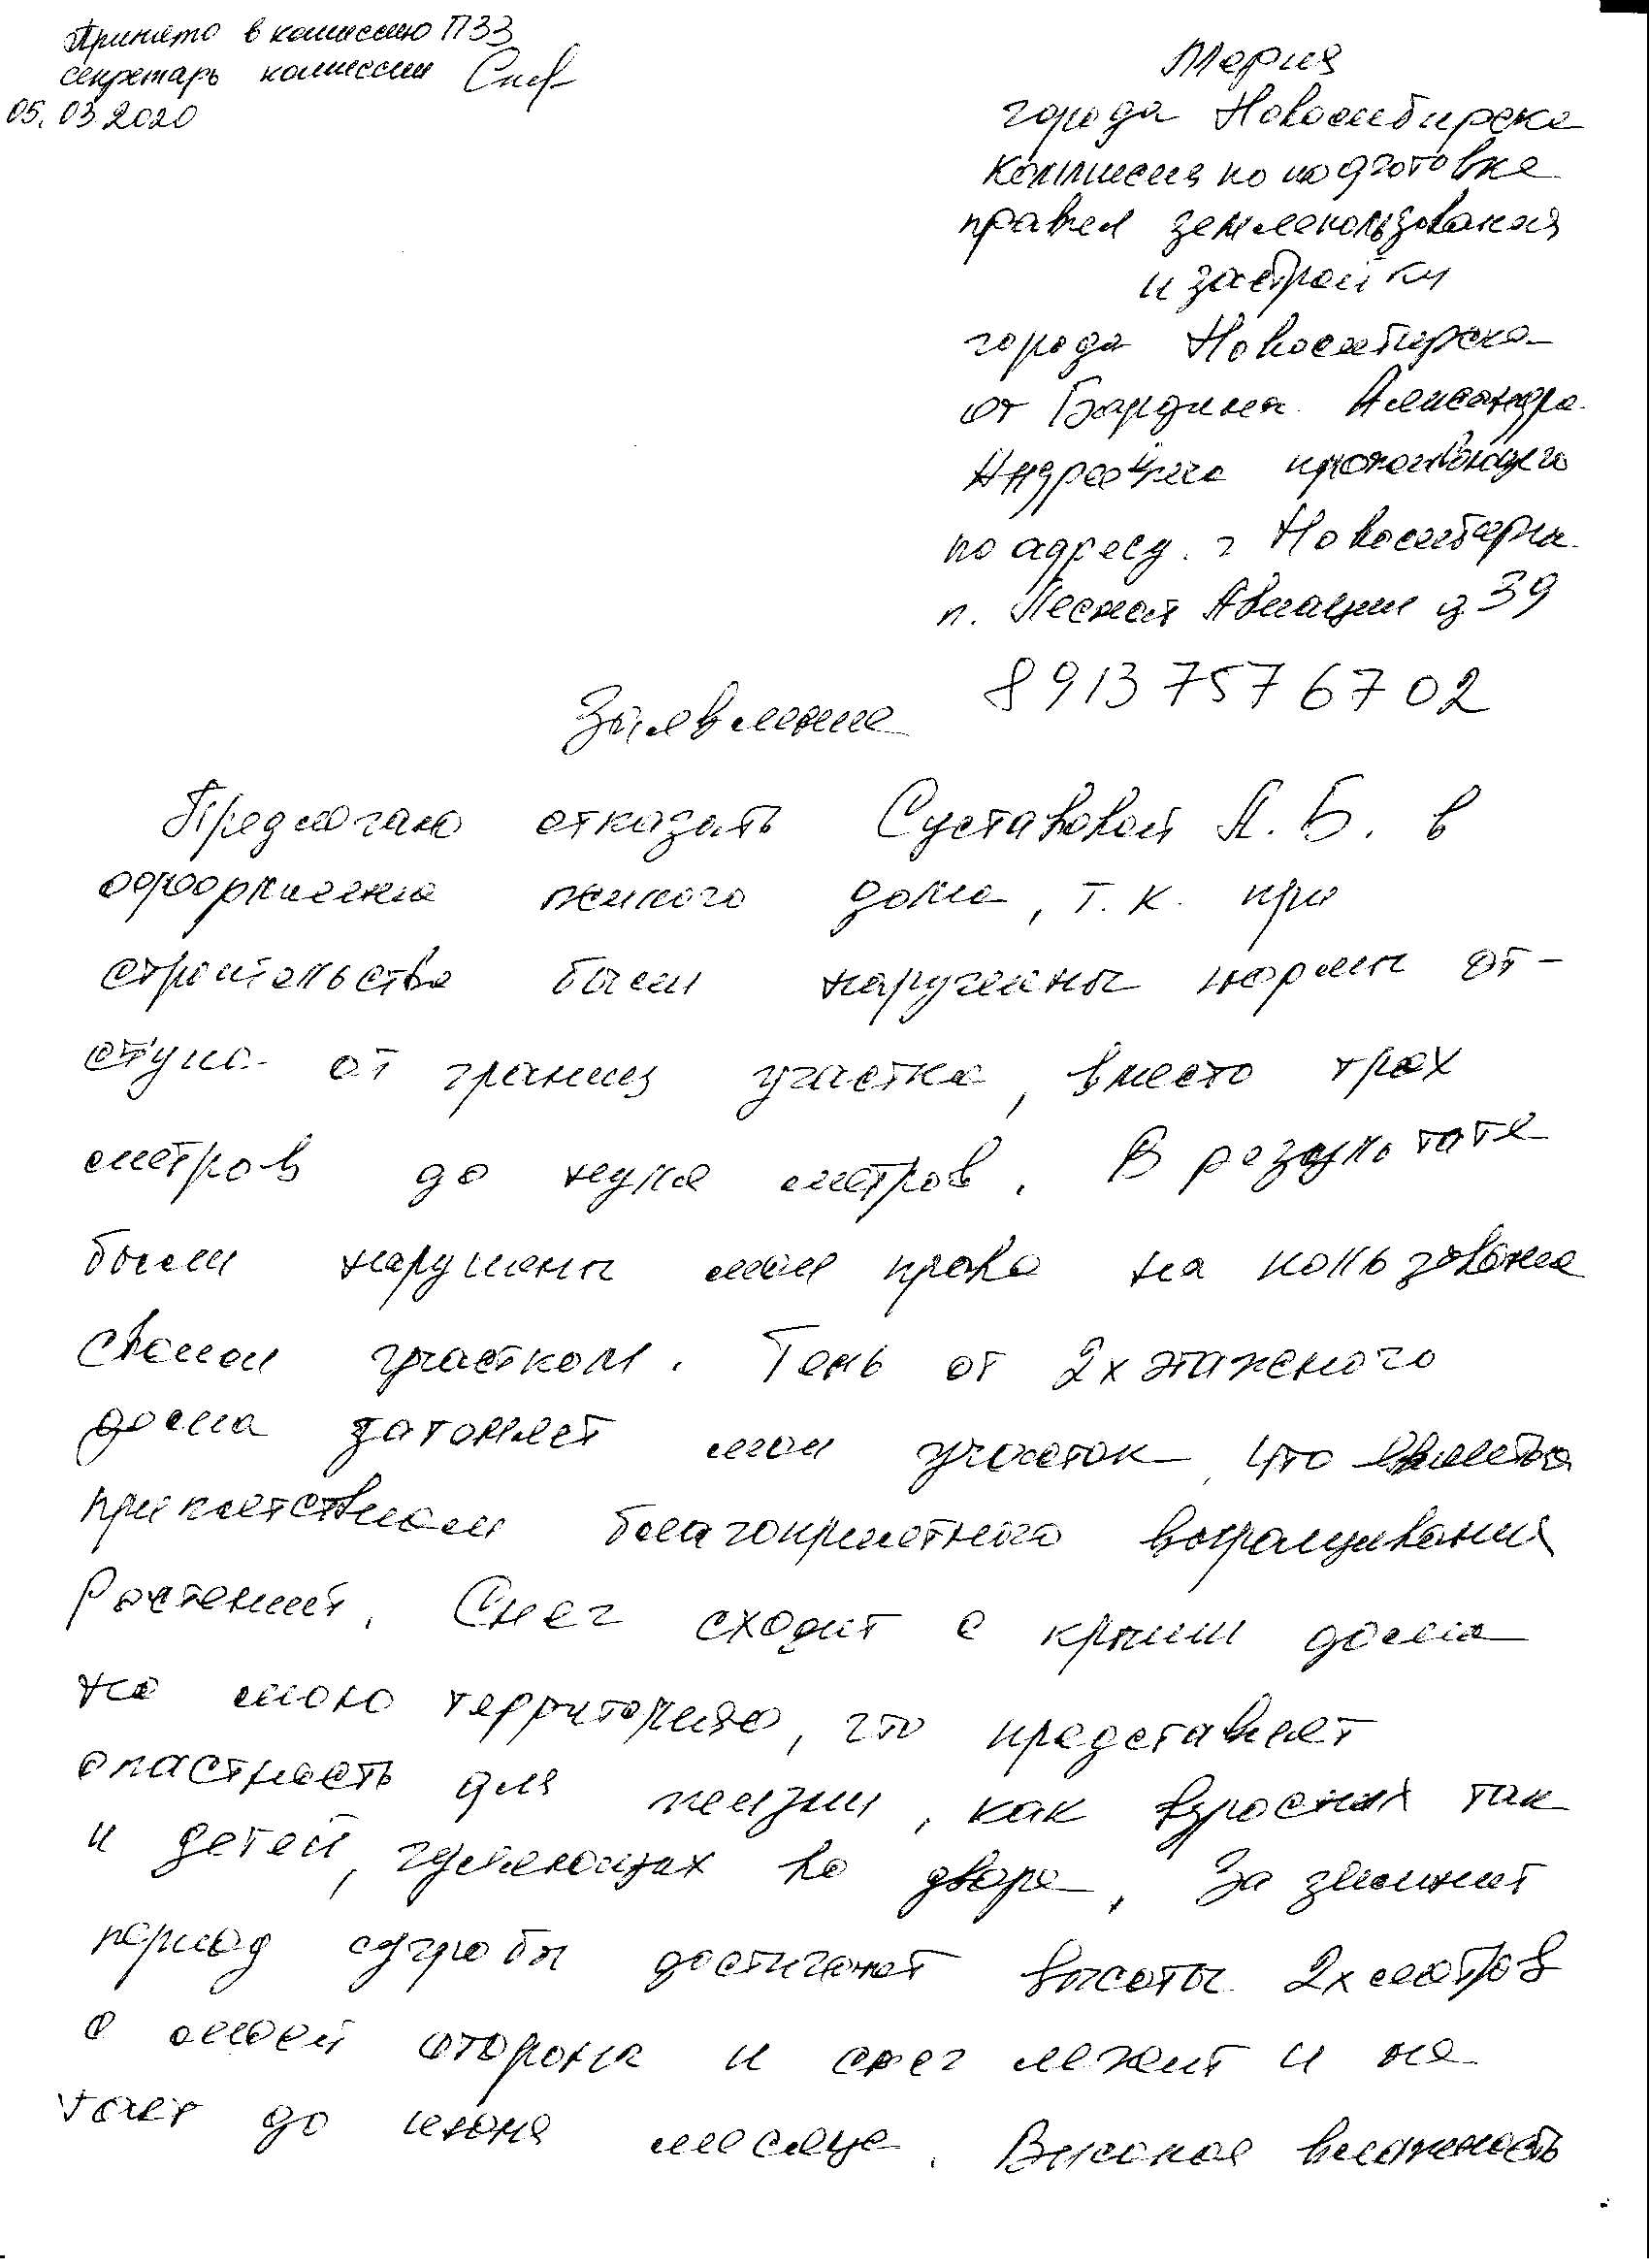 Принято в комиссию ПЗЗ
секретарь комиссии
05.03.2020
Мерия
города Новосибирска
комиссия по подготовке
правил землепользования
и застройки
города Новосибирска
от Бардина Александра
Андреевича проживающего
по адресу. г Новосибирск.
п. Лесной Авиации д 39
8913 757 6702
Заявление
Предлогаю отказать Суставовой А. Б. в
оформление жилого дома, т.к. при
строительстве были нарушены нормы от-
ступа от границ участка, вместо трех
метров до нуля метров. В результате
были нарушены мои права на пользование
своим участком. Тень от 2х этажного
дома затеняет мой участок, что является
припятствием благоприятного выращивания
Растений. Снег сходит с крыши дома
на мою территорию, что представляет
опастность для жизни, как взрослых так
и детей, гуляющих во дворе. За зимний
период сугробы достигают высоты 2х метров
с моей стороны и снег лежит и не
тает до июня месяца. Высокая влажность